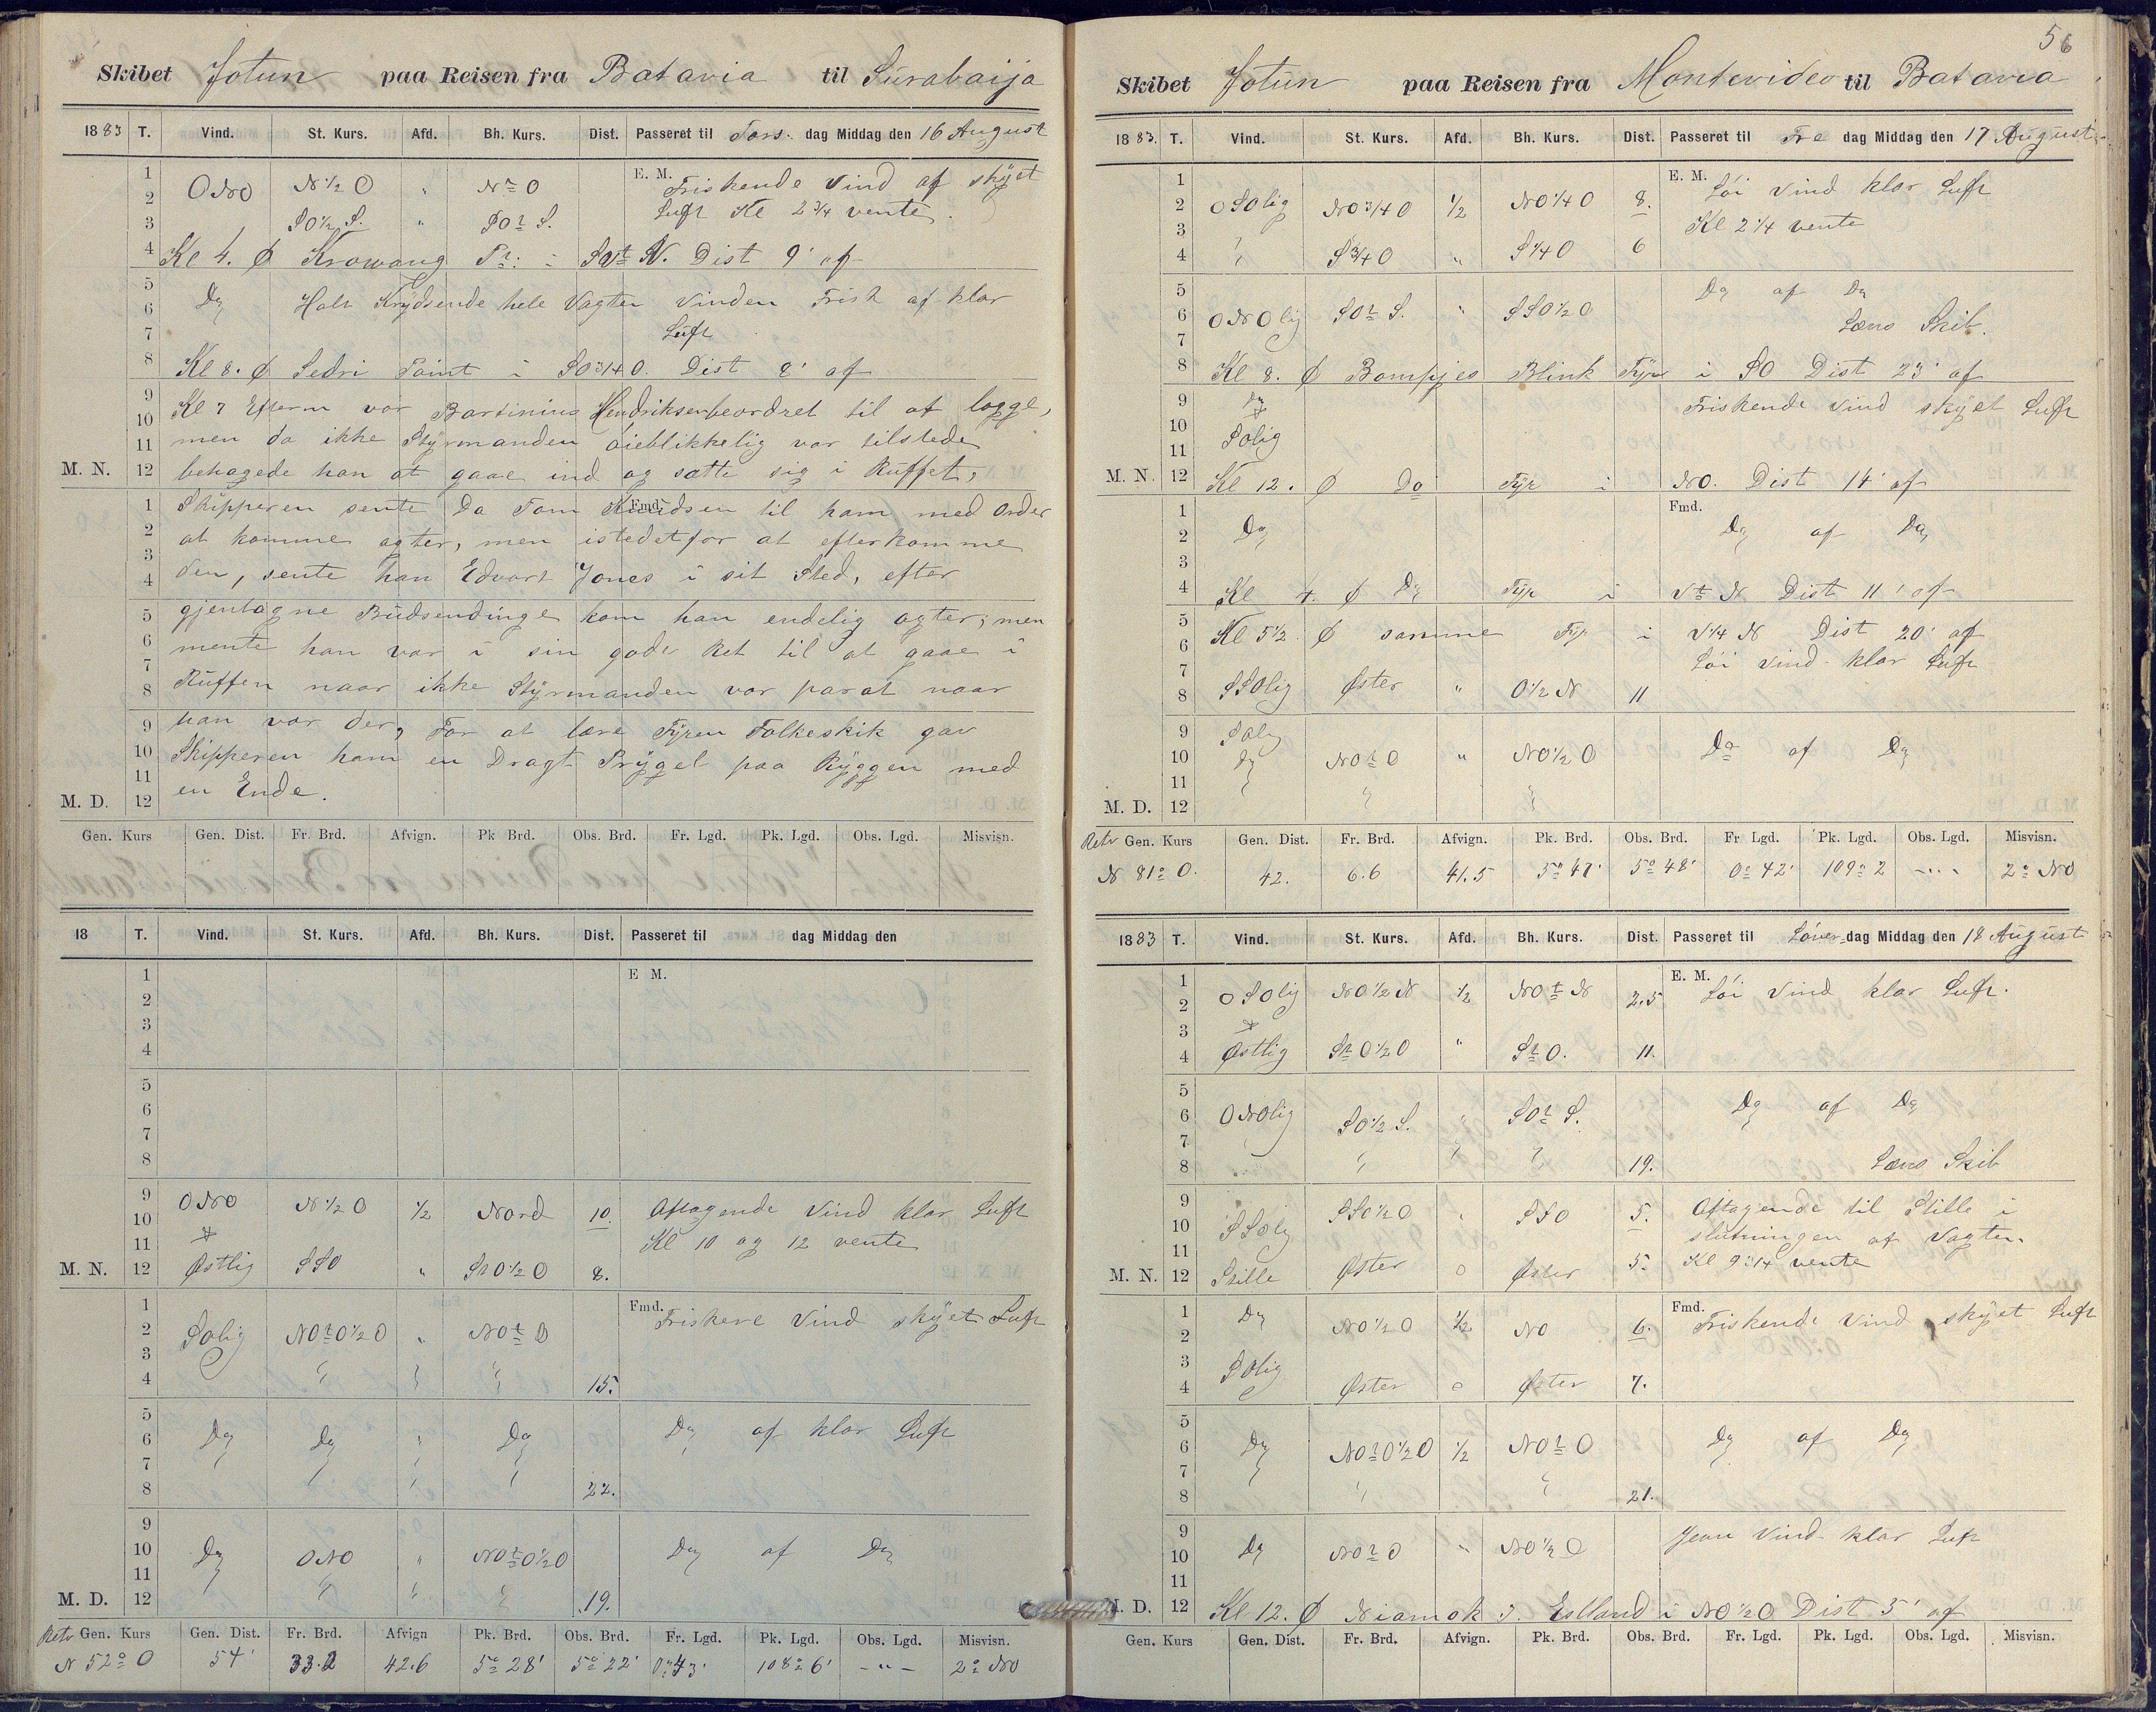 Skibet Jotun paa Reisen fra Batavia til Surabaija
1883 T. Vind. St. Kurs. Afd. Bh. Kurs. Dist. Passeret til Tors dag Middag den 16 August
1 2 3 4
ONO N½O " Nt O E. M. Friskende Vind af skyet
SO½S. " SOt S. Luft Kl 2¾ vente.
Kl 4. Ø Krowang Pt: i SVt V. Dist 9' af
5 6 7 8
Do Holt Krydsende hele Vagten Vinden Frisk af klar
Luft
Kl 8. Ø Sedri Point i SO¾O. Dist 8' af
9 10 11 M. N. 12
Kl 7 Efterm var Bartinius Hendriksen beordret til at logge,
men da ikke Styrmanden øieblikkelig var tilstede
behagede han at gaae ind og sætte sig i Ruffet,
1 2 3 4
Fmd.
Skipperen sente Da Tom Knudsen til ham med Order
at komme agter, men istedetfor at efterkomme
den, sente han Edvart Jones i sit Sted, efter
5 6 7 8
gjentagne Budsendinge kom han endelig agter; men
mente han var i sin gode Ret til at gaae i
Ruffen naar ikke Styrmanden var parat naar
9 10 11 M. D. 12
han var der, For at lære Fyren Folkeskik gav
Skipperen ham en Dragt Prygel paa Ryggen med
en Ende.
Gen. Kurs Gen. Dist. Fr. Brd. Afvign. Pk Brd. Obs. Brd. Fr. Lgd. Pk. Lgd. Obs. Lgd. Misvisn.
18 T. Vind. St. Kurs. Afd. Bh. Kurs. Dist. Passeret til dag Middag den
1 2 3 4
E M.
5 6 7 8
9 10 11 M. N. 12
ONO N½O ½ Nord 10. Aftagende Vind klar Luft
Kl 10 og 12 vente
Østlig SSO " St O½O 8.
1 2 3 4
Fmd. Friskere Vind skyet Luft
SOlig NOtO½O " NOt O
15.
5 6 7 8
Do Do Do Do af klar Luft
22.
9 10 11 M. D. 12
Do ONO " NOtO½O Do af Do
19.
Retv Gen. Kurs Gen. Dist. Fr. Brd. Afvign Pk. Brd. Obs. Brd. Fr. Lgd. Pk. Lgd. Obs. Lgd. Misvisn.
N 52° O 54' 33.2 42.6 5° 28' 5° 22' 0° 43' 108° 6' -"- 2° NO
56
Skibet Jotun paa Reisen fra Montevideo til Batavia
1883. T. Vind. St. Kurs. Afd. Bh. Kurs. Dist. Passeret til Fre dag Middag den 17 August
1 2 3 4
E. M. Løi Vind klar Luft
OSOlig NO¾O ½ NO¼O 8.
Kl 2¼ vente
" S¾O " S¼O 6
5 6 7 8
Do af Do
ONOlig SOt S. " SSO½O
Læns Skib.
Kl 8. Ø Bompjes Blink Fyr i SO Dist 23' af
9 10 11 M. N. 12
Do Friskende Vind skyet Luft
SOlig
Kl 12. Ø Do Fyr i NO. Dist 14' af
1 2 3 4
Fmd.
Do Do af Do
Kl 4. Ø Do Fyr i Vt N Dist 11' af
5 6 7 8
Kl 5½ Ø samme Fyr i V¼N Dist 20' af
Løi Vind klar Luft
SSOlig Øster " O½N 11
9 10 11 M. D. 12
SOlig
Do NOt O " NO½O Do af Do
Retv Gen. Kurs Gen. Dist. Fr. Brd. Afvign. Pk. Brd. Obs. Brd. Fr Lgd. Pk. Lgd. Obs. Lgd. Misvisn.
N 81° O. 42. 6.6 41.5 5° 47' 5° 48' 0° 42' 109° 2 -"- 2° NO
1883 T. Vind. St. Kurs. Afd. Bh. Kurs. Dist. Passeret til Løver dag Middag den 18 August
1 2 3 4
E. M. Løi Vind klar Luft.
OSOlig NO½N ½ NOt N 2.5
Østlig St O½O " St O. 11.
5 6 7 8
ONOlig SO½S. " SOt S. Do af Do
19. Læns Skib
9 10 11 M. N. 12
SSOlig SSO½O " SSO 5. Aftagende til Stille i
slutningen af Vagten.
Stille Øster o Øster 5. Kl 9¼ vente
1 2 3 4
Fmd. Friskende Vind skyet Luft
Do NO½O ½ NO 6.
SOlig Øster o Øster 7.
5 6 7 8
Do NOtO½O ½ NOt O Do af Do
21.
9 10 11 M. D. 12
Jevn Vind klar Luft
Do NOt O " NO½O
Kl 12. Ø Niamok J. Eslland i NO½O Dist 3' af
Gen. Kurs Gen. Dist. Fr. Brd. Afvign. Pk. Brd. Obs. Brd. Fr. Lgd. Pk. Lgd. Obs. Lgd. Misvisn.